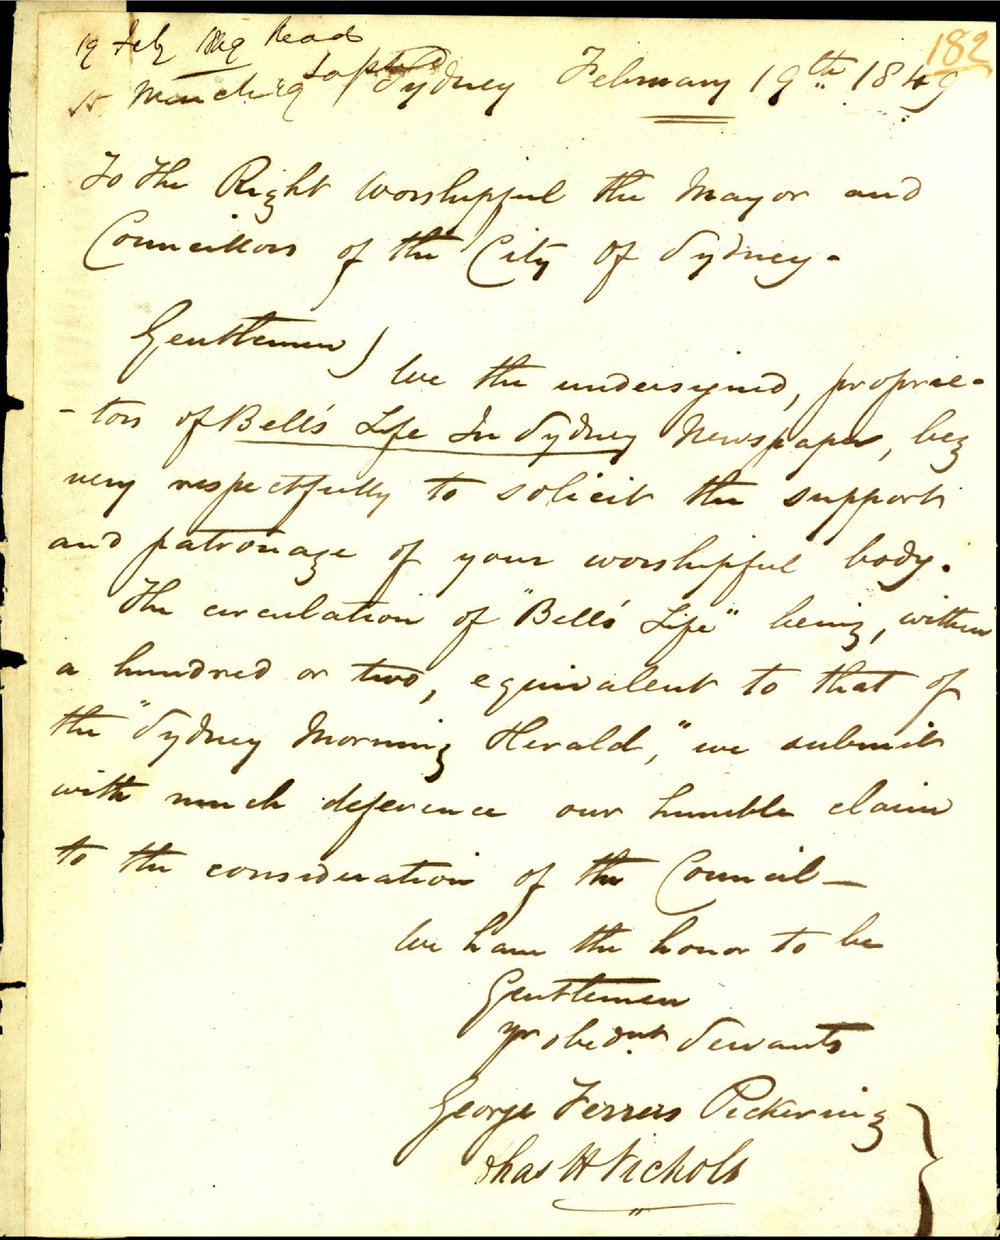 182
19 Feby 1849 Read
Sydney February 19th 1849
To the Right Worshipful the Mayor and
Councillors of the City of Sydney -
Gentlemen)
We the undersigned, proprie-
-tors of Bell's Life In Sydney Newspaper, beg
very respectfully to solicit the support
and patronage of your worshipful body.
The circulation of "Bell's Life" being, within
a hundred or two, equivalent to that of
the "Sydney Morning Herald," we submit
with much deference our humble claim
to the consideration of the Council —
We have the honor to be
Gentlemen
yr obednt Servants
George Ferrers Pickering
Chas H Nichols